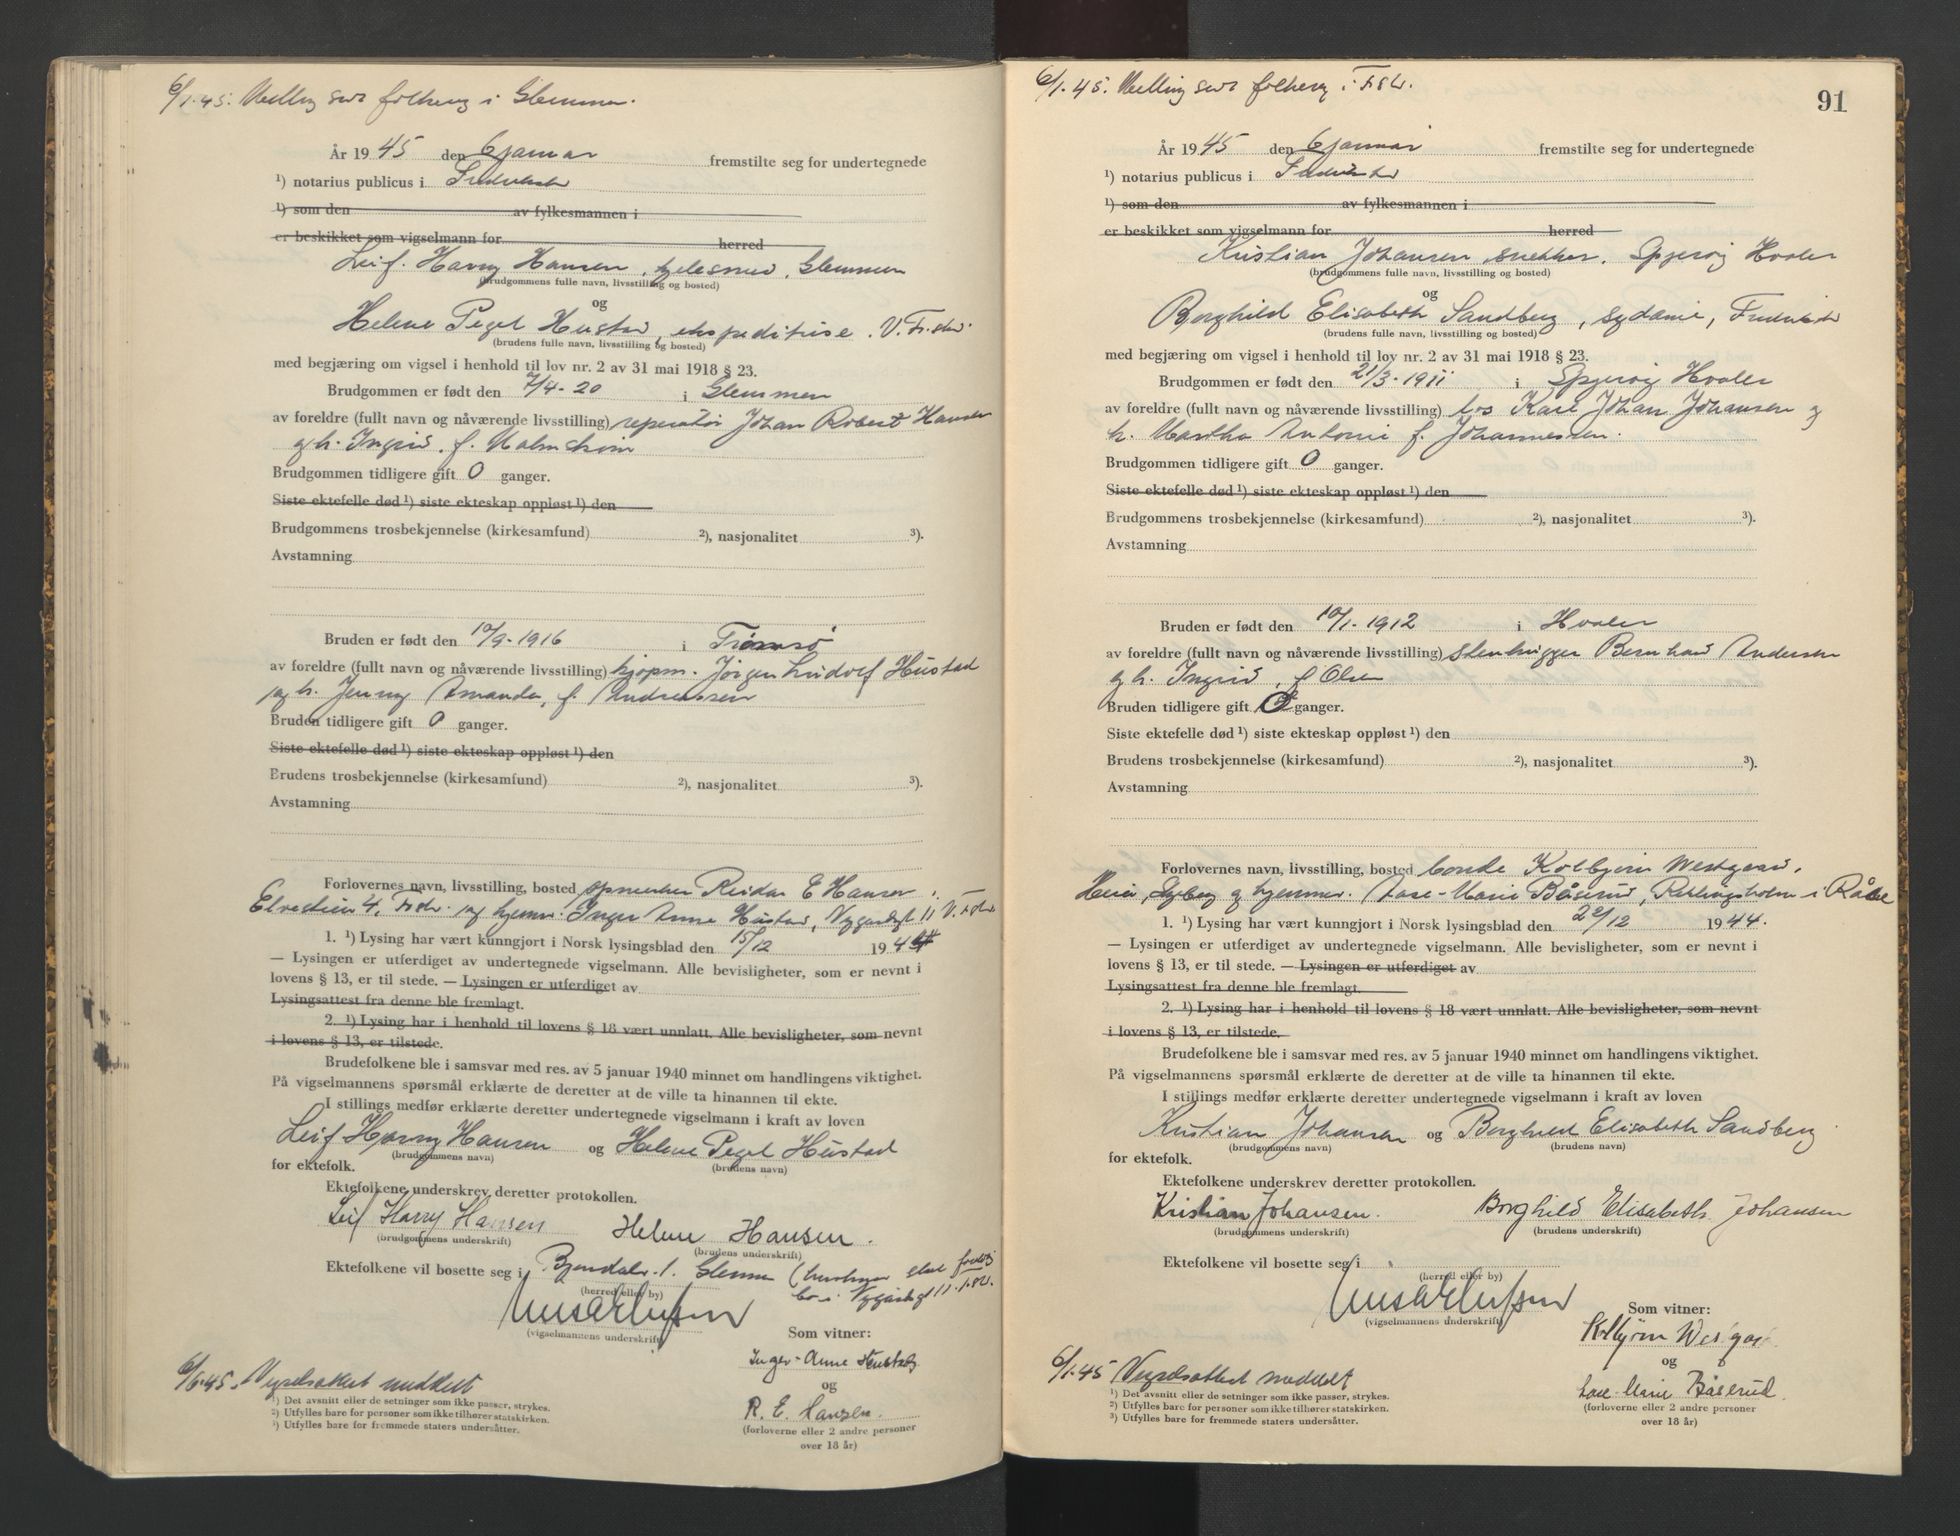 6/1.45. Melding sendt folkereg i Glemmen.
År 1945 den 6 januar fremstilte seg for undertegnede
¹) notarius publicus i Fredrikstad
¹) som den av fylkesmannen i
er beskikket som vigselmann for herred
Leif Harry Hansen, Glemmen
(brudgommens fulle navn, livsstilling og bosted)
og
Helene Pegel Hustad, ekspeditrise. V. Fr.stad.
(brudens fulle navn, livsstilling og bosted)
med begjæring om vigsel i henhold til lov nr. 2 av 31 mai 1918 § 23.
Brudgommen er født den 7/4-20 i Glemmen
av foreldre (fullt navn og nåværende livsstilling) reperatør Johan Robert Hansen
og h. Ingrid, f. Malmstrøm
Brudgommen tidligere gift 0 ganger.
Siste ektefelle død ¹) siste ekteskap oppløst ¹) den
Brudgommens trosbekjennelse (kirkesamfund) ²), nasjonalitet ³).
Avstamning
Bruden er født den 10/9-1916 i Tromsø
av foreldre (fullt navn og nåværende livsstilling) kjøpm. Jørgen Ludolf Hustad
og h. Jenny Amanda, f. Andreassen
Bruden tidligere gift 0 ganger.
Siste ektefelle død ¹) siste ekteskap oppløst ¹) den
Brudens trosbekjennelse (kirkesamfund) ²), nasjonalitet ³).
Avstamning
Forlovernes navn, livsstilling, bosted Reidar E Hansen,
4, Fr.stad. og hjemv. Inger Anne Hustad, Nygaardsgt 11 V. Fr.stad
1. ¹) Lysing har vært kunngjort i Norsk lysingsblad den 15/12 1944
— Lysingen er utferdiget av undertegnede vigselmann. Alle bevisligheter, som er nevnt i
lovens § 13, er til stede. — Lysingen er utferdiget av
Lysingsattest fra denne ble fremlagt.
2. ¹) Lysing har i henhold til lovens § 18 vært unnlatt. Alle bevisligheter, som nevnt
i lovens § 13, er tilstede.
Brudefolkene ble i samsvar med res. av 5 januar 1940 minnet om handlingens viktighet.
På vigselmannens spørsmål erklærte de deretter at de ville ta hinannen til ekte.
I stillings medfør erklærte deretter undertegnede vigselmann i kraft av loven
Leif Harry Hansen og Helene Pegel Hustad
(brudgommens navn) (brudens navn)
for ektefolk.
Ektefolkene underskrev deretter protokollen.
Leif Harry Hansen Helene Hansen.
(brudgommens underskrift) (brudens underskrift)
Ektefolkene vil bosette seg i Glemmen
(herred eller by)
(vigselmannens underskrift)
Som vitner:
Inger-Anne Hustad
og
R. E. Hansen.
(forloverne eller 2 andre personer
over 18 år)
6/1.45. Vigselsattest meddelt
¹) Det avsnitt eller de setninger som ikke passer, strykes.
²) Utfylles bare for personer som ikke tilhører statskirken.
³) Utfylles bare for fremmede staters undersåtter.
91
6/1.45. Melding sendt folkereg i Fr.stad.
År 1945 den 6 januar fremstilte seg for undertegnede
¹) notarius publicus i Fredrikstad
¹) som den av fylkesmannen i
er beskikket som vigselmann for herred
Kristian Johansen, snekker, Spjerøy Hvaler
(brudgommens fulle navn, livsstilling og bosted)
og
Borghild Elisabeth Sandberg, sydame, Fredrikstad
(brudens fulle navn, livsstilling og bosted)
med begjæring om vigsel i henhold til lov nr. 2 av 31 mai 1918 § 23.
Brudgommen er født den 21/3-1911 i Spjerøy Hvaler
av foreldre (fullt navn og nåværende livsstilling) los Karl Johan Johansen og
h. Martha Antonie f. Johannessen.
Brudgommen tidligere gift 0 ganger.
Siste ektefelle død ¹) siste ekteskap oppløst ¹) den
Brudgommens trosbekjennelse (kirkesamfund) ²), nasjonalitet ³).
Avstamning
Bruden er født den 10/1-1912 i Hvaler
av foreldre (fullt navn og nåværende livsstilling) stenhugger Bernhard Andersen
og h. Ingrid, f. Olsen
Bruden tidligere gift ganger.
Siste ektefelle død ¹) siste ekteskap oppløst ¹) den
Brudens trosbekjennelse (kirkesamfund) ²), nasjonalitet ³).
Avstamning
Forlovernes navn, livsstilling, bosted bonde Kolbjørn Westgaard,
og hjemmev. Aase-Marie Båserud, i Råde
1. ¹) Lysing har vært kunngjort i Norsk lysingsblad den 22/12 1944.
— Lysingen er utferdiget av undertegnede vigselmann. Alle bevisligheter, som er nevnt i
lovens § 13, er til stede. — Lysingen er utferdiget av
Lysingsattest fra denne ble fremlagt.
2. ¹) Lysing har i henhold til lovens § 18 vært unnlatt. Alle bevisligheter, som nevnt
i lovens § 13, er tilstede.
Brudefolkene ble i samsvar med res. av 5 januar 1940 minnet om handlingens viktighet.
På vigselmannens spørsmål erklærte de deretter at de ville ta hinannen til ekte.
I stillings medfør erklærte deretter undertegnede vigselmann i kraft av loven
Kristian Johansen og Borghild Elisabeth Sandberg
(brudgommens navn) (brudens navn)
for ektefolk.
Ektefolkene underskrev deretter protokollen.
Kristian Johansen. Borghild Elisabeth Johansen
(brudgommens underskrift) (brudens underskrift)
Ektefolkene vil bosette seg i
(herred eller by)
(vigselmannens underskrift)
Som vitner:
Kolbjørn Westgaard
og
Aase-Marie Båserud.
(forloverne eller 2 andre personer
over 18 år)
6/1.45 Vigselsattest meddelt
¹) Det avsnitt eller de setninger som ikke passer, strykes.
²) Utfylles bare for personer som ikke tilhører statskirken.
³) Utfylles bare for fremmede staters undersåtter.